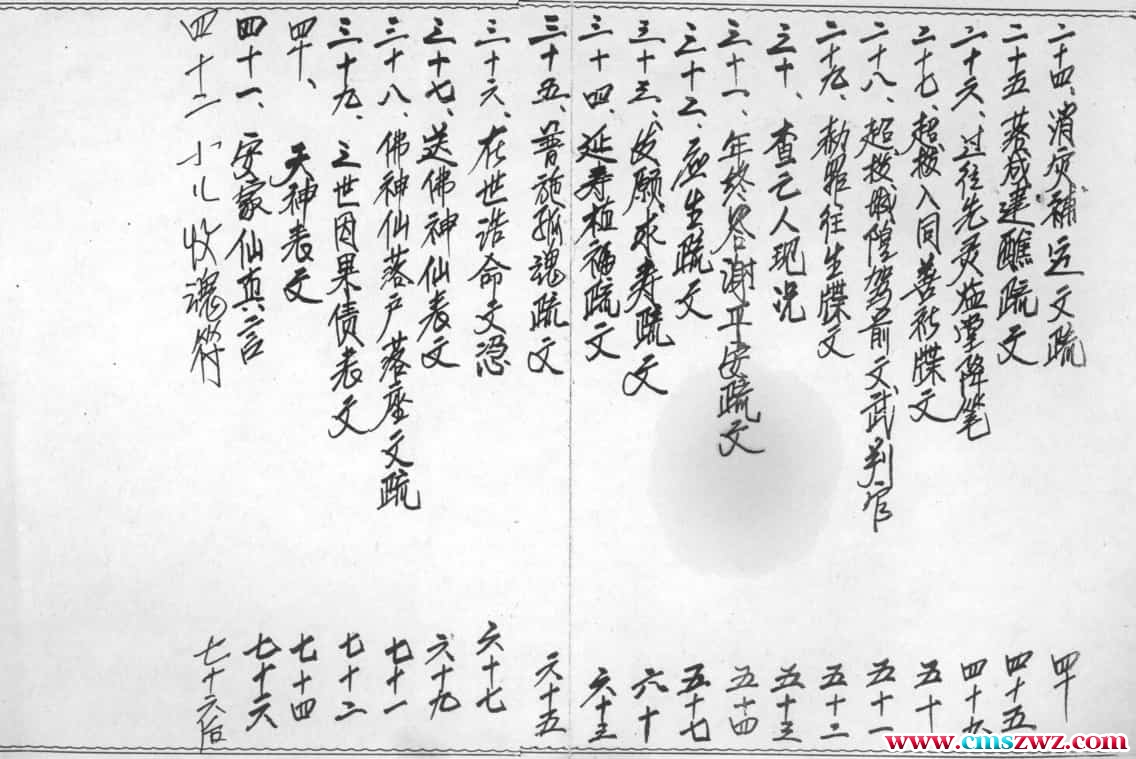 二十四、消灾补运文疏 四十
二十五、落成建醮疏文 四十五
二十六、过往先灵莅堂降笔 四十九
二十七、超拔入同善社牒文 五十
二十八、超拔城隍驾前文武判官 五十一
二十九、敕照往生牒文 五十二
三十、查亡人现况 五十三
三十一、年终答谢平安疏文 五十四
三十二、应生疏文 五十七
三十三、发愿求寿疏文 六十
三十四、延寿植福疏文 六十三
三十五、普施孤魂疏文 六十五
三十六、在世诰命文 六十七
三十七、送佛神仙表文 六十九
三十八、佛神仙落户落座文疏 七十一
三十九、三世因果债表文 七十二
四十、天神表文 七十四
四十一、安家仙真言 七十六
四十二 小儿收魂符 七十六后
www.cmszwz.com